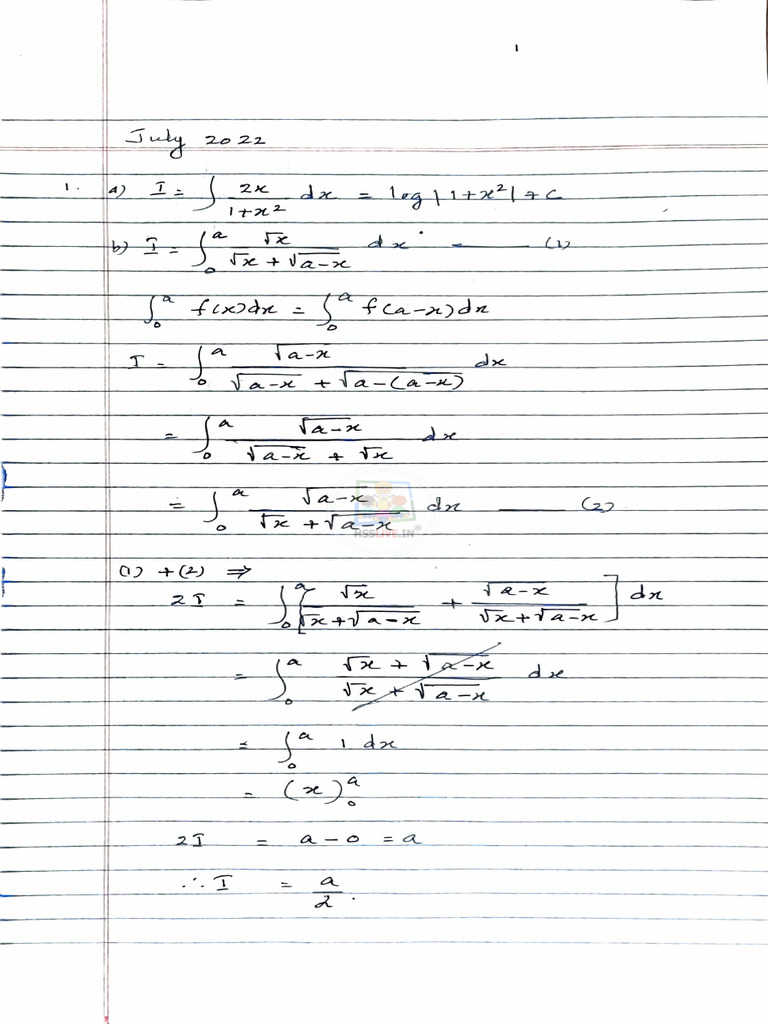 1
July 2022
1. a) I = ∫ 2x/(1+x²) dx = log|1+x²| + c
b) I = ∫₀ᵃ √x/(√x + √(a-x)) dx —— (1)
∫₀ᵃ f(x)dx = ∫₀ᵃ f(a-x)dx
I = ∫₀ᵃ √(a-x)/(√(a-x) + √(a-(a-x))) dx
= ∫₀ᵃ √(a-x)/(√(a-x) + √x) dx
= ∫₀ᵃ √(a-x)/(√x + √(a-x)) dx —— (2)
HSSLIVE.IN
(1) + (2) ⇒
2I = ∫₀ᵃ [√x/(√x+√(a-x)) + √(a-x)/(√x+√(a-x))] dx
= ∫₀ᵃ (√x + √(a-x))/(√x + √(a-x)) dx
= ∫₀ᵃ 1 dx
= (x)₀ᵃ
2I = a - 0 = a
∴ I = a/2.